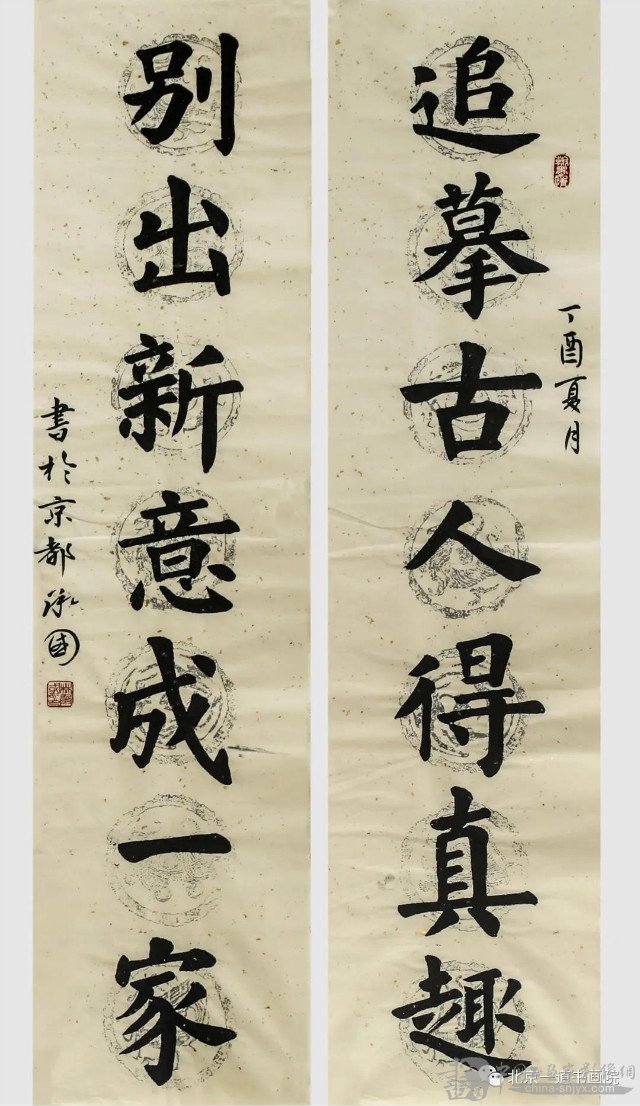 追摹古人得真趣
丁酉夏月
别出新意成一家
書於京都
北京一道书画院
china-snjyx.com